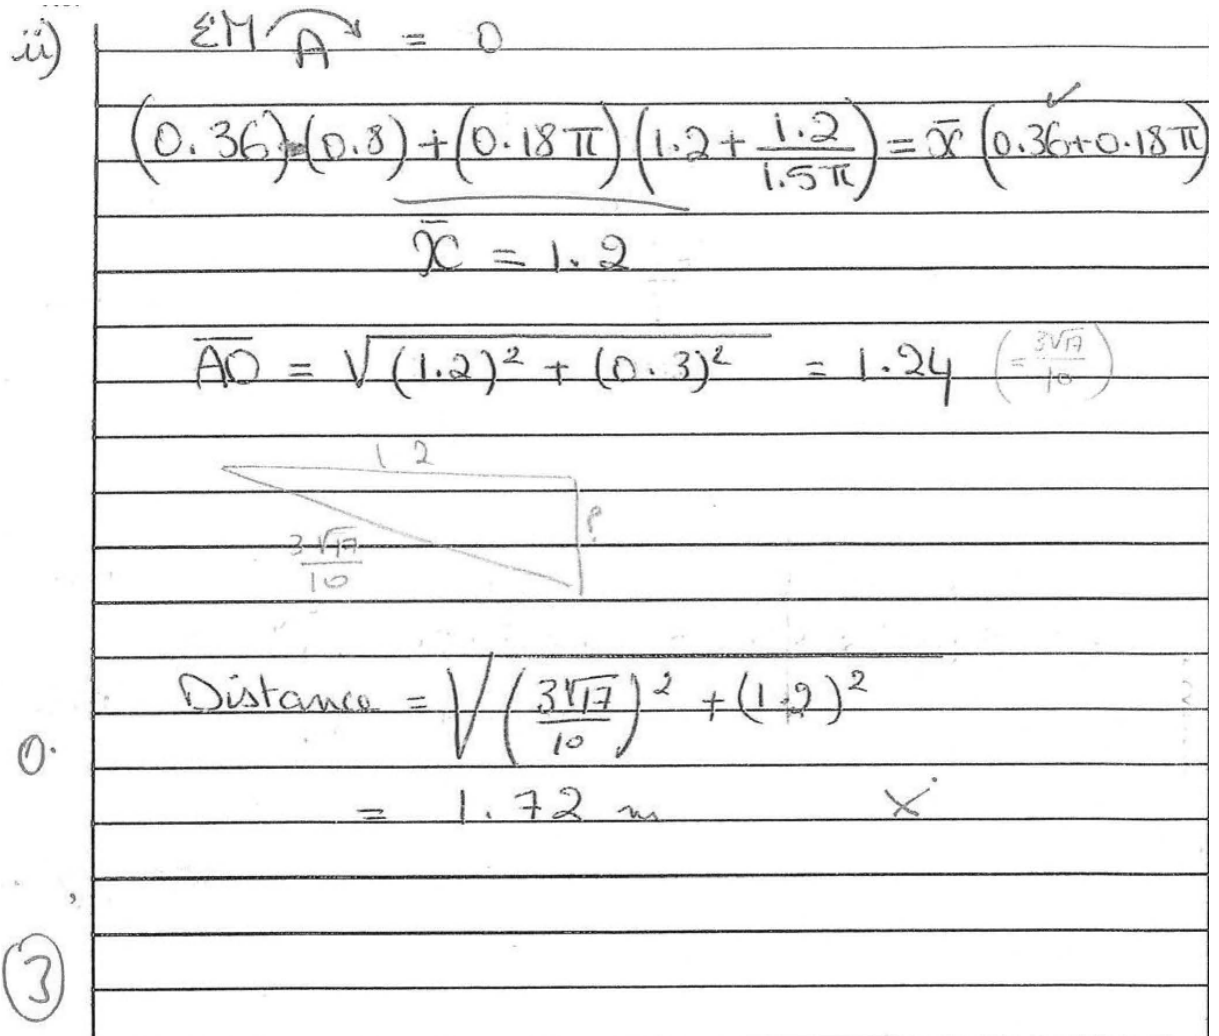 ii) ΣM A = 0
(0.36)(0.8) + (0.18π)(1.2 + 1.2/1.5π) = x̄ (0.36+0.18π) ✓
x̄ = 1.2
AO = √((1.2)² + (0.3)²) = 1.24 (= 3√17/10)
1 2
?
3√17/10
Distance = √((3√17/10)² + (1.2)²)
0.
= 1.72 m ×
3